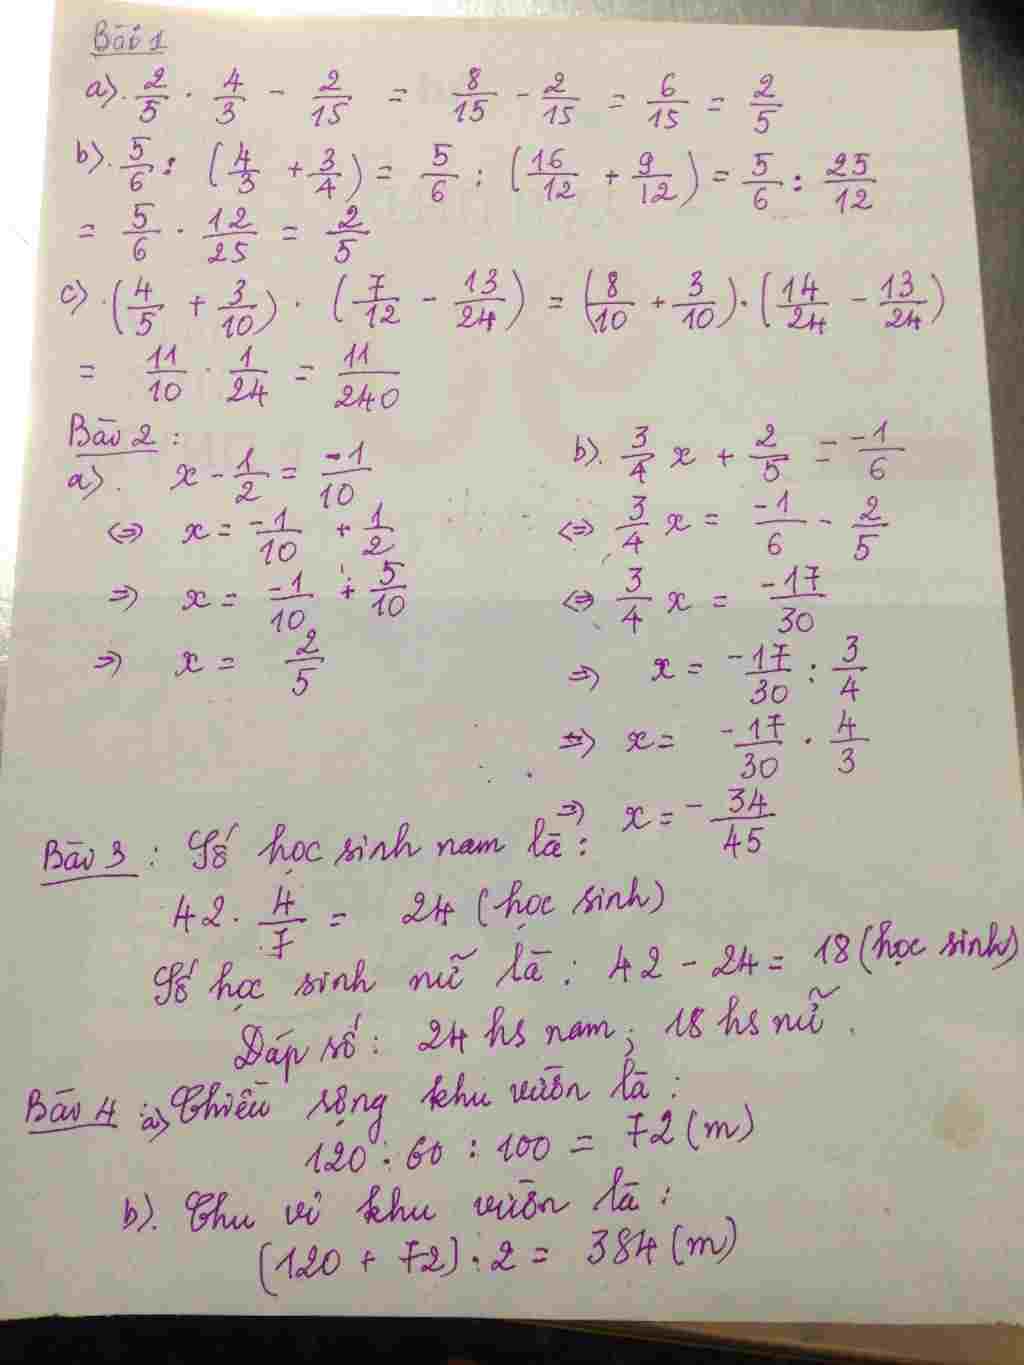 Bài 1
a). 2/5 . 4/3 - 2/15 = 8/15 - 2/15 = 6/15 = 2/5
b). 5/6 : (4/3 + 3/4) = 5/6 : (16/12 + 9/12) = 5/6 : 25/12
= 5/6 . 12/25 = 2/5
c). (4/5 + 3/10) . (7/12 - 13/24) = (8/10 + 3/10) . (14/24 - 13/24)
= 11/10 . 1/24 = 11/240
Bài 2 :
a). x - 1/2 = -1/10
<=> x = -1/10 + 1/2
=> x = -1/10 + 5/10
=> x = 2/5
b). 3/4 x + 2/5 = -1/6
<=> 3/4 x = -1/6 - 2/5
<=> 3/4 x = -17/30
=> x = -17/30 : 3/4
=> x = -17/30 . 4/3
=> x = -34/45
Bài 3 : Số học sinh nam là :
42 . 4/7 = 24 (học sinh)
Số học sinh nữ là : 42 - 24 = 18 (học sinh)
Đáp số : 24 hs nam ; 18 hs nữ .
Bài 4 : a) Chiều rộng khu vườn là :
120 . 60 : 100 = 72 (m)
b). Chu vi khu vườn là :
(120 + 72) . 2 = 384 (m)